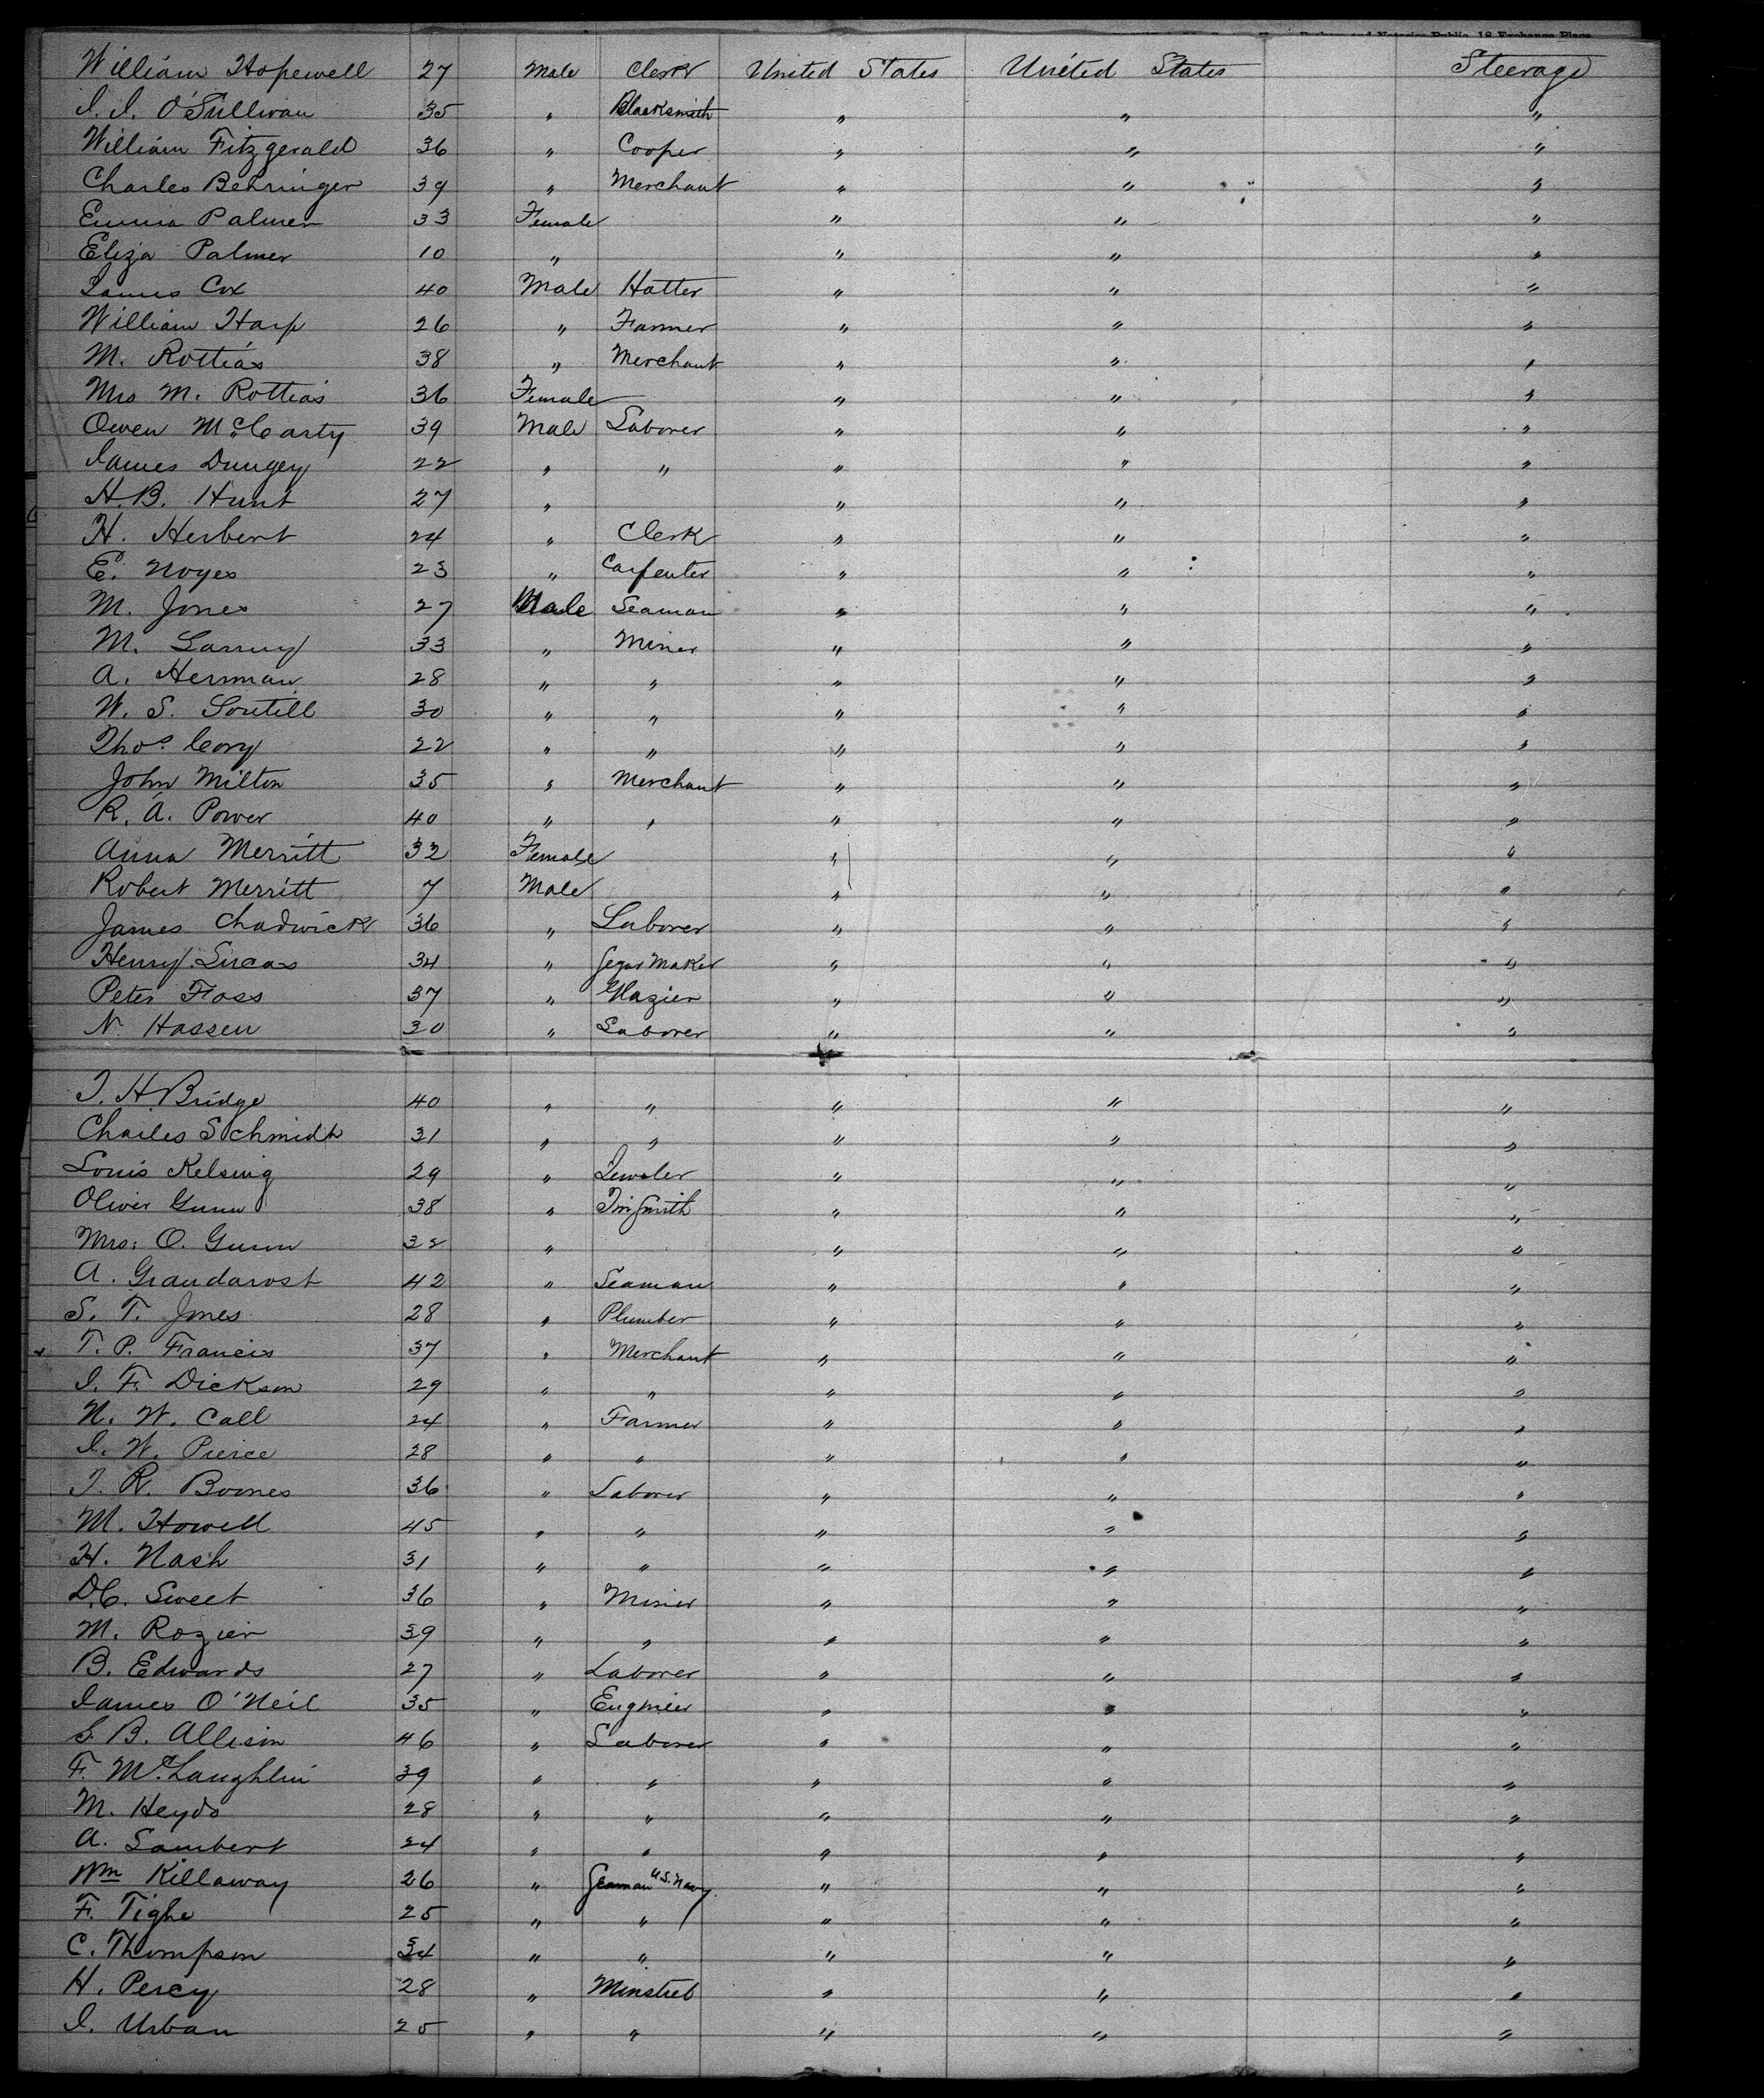 William Hopewell 27 Male Clerk United States United States Steerage
I. I. O'Sullivan 35 " Blacksmith " " "
William Fitzgerald 36 " Cooper " " "
Charles Behringer 39 " Merchant " " "
Emma Palmer 33 Female " " "
Eliza Palmer 10 " " " "
James Cox 40 Male Hatter " " "
William Harp 26 " Farmer " " "
M. Rottias 38 " Merchant " " "
Mrs M. Rottias 36 Female " " "
Owen McCarty 39 Male Laborer " " "
James Dungey 22 " " " " "
H. B. Hunt 27 " " " "
H. Herbert 24 " Clerk " " "
E. Noyes 23 " Carpenter " " "
M. Jones 27 Male Seaman " " "
M. 33 " Miner " " "
A. Herman 28 " " " " "
W. S. Soutill 30 " " " " "
Thos. Cory 22 " " " " "
John Milton 35 " Merchant " " "
R. A. Power 40 " " " " "
Anna Merritt 32 Female " " "
Robert Merritt 7 Male " " "
James Chadwick 36 " Laborer " " "
Henry Lucas 34 " Segar Maker " " "
Peter Foss 37 " Glazier " " "
N. Hassen 30 " Laborer " " "
T. H Bridge 40 " " " " "
Charles Schmidt 31 " " " " "
Louis Kelsing 29 " Jeweler " " "
Oliver Gunn 38 " Tin Smith " " "
Mrs. O. Gunn 32 " " " "
A. Grandarost 42 " Seaman " " "
S. T. Jones 28 " Plumber " " "
T. P. Francis 37 " Merchant " " "
I. F. Dickson 29 " " " " "
N. W. Call 24 " Farmer " " "
I. W. Pierce 28 " " " " "
T. R. Boones 36 " Laborer " " "
M. Howell 45 " " " " "
H. Nash 31 " " " " "
D. C. Sweet 36 " Miner " " "
M. Rozier 39 " " " " "
B. Edwards 27 " Laborer " " "
James O'Neil 35 " Engineer " " "
S. B. Allison 46 " Laborer " " "
F. McLaughlin 39 " " " " "
M. Heyds 28 " " " " "
A. Lambert 24 " " " " "
Wm Killaway 26 " Seaman U.S. Navy. " " "
F. Tighe 25 " " " " "
C. Thompson 34 " " " " "
H. Percy 28 " Minstrel " " "
I. Urban 25 " " " " "